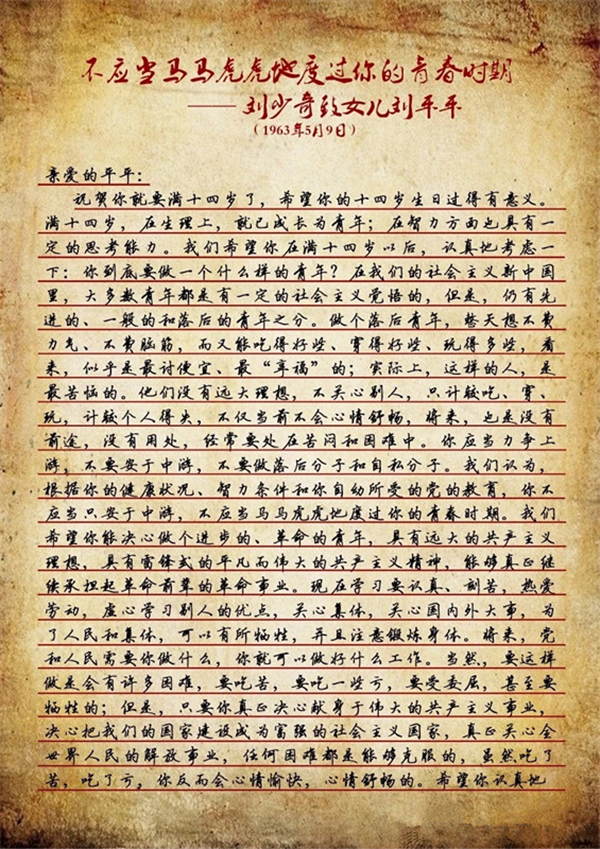 不应当马马虎虎地度过你的青春时期
——刘少奇致女儿刘平平
（1963年5月9日）
亲爱的平平：
祝贺你就要满十四岁了，希望你的十四岁生日过得有意义。
满十四岁，在生理上，就已成长为青年；在智力方面也具有一
定的思考能力。我们希望你在满十四岁以后，认真地考虑一
下：你到底要做一个什么样的青年？在我们的社会主义新中国
里，大多数青年都是有一定的社会主义觉悟的，但是，仍有先
进的、一般的和落后的青年之分。做个落后青年，整天想不费
力气、不费脑筋，而又能吃得好些、穿得好些、玩得多些，看
来，似乎是最讨便宜、最“幸福”的；实际上，这样的人，是
最苦恼的。他们没有远大理想，不关心别人，只计较吃、穿、
玩，计较个人得失，不仅当前不会心情舒畅，将来，也是没有
前途，没有用处，经常要处在苦闷和困难中。你应当力争上
游，不要安于中游，不要做落后分子和自私分子。我们认为，
根据你的健康状况、智力条件和你自幼所受的党的教育，你不
应当只安于中游，不应当马马虎虎地度过你的青春时期。我们
希望你能决心做个进步的、革命的青年，具有远大的共产主义
理想，具有雷锋式的平凡而伟大的共产主义精神，能够真正继
续承担起革命前辈的革命事业。现在学习要认真、刻苦，热爱
劳动，虚心学习别人的优点，关心集体，关心国内外大事，为
了人民和集体，可以有所牺牲，并且注意锻炼身体。将来，党
和人民需要你做什么，你就可以做好什么工作。当然，要这样
做是会有许多困难，要吃苦，要吃一些亏，要受委屈，甚至要
牺牲的；但是，只要你真正决心献身于伟大的共产主义事业，
决心把我们的国家建设成为富强的社会主义国家，真正关心全
世界人民的解放事业，任何困难都是能够克服的，虽然吃了
苦，吃了亏，你反而会心情愉快，心情舒畅的。希望你认真地